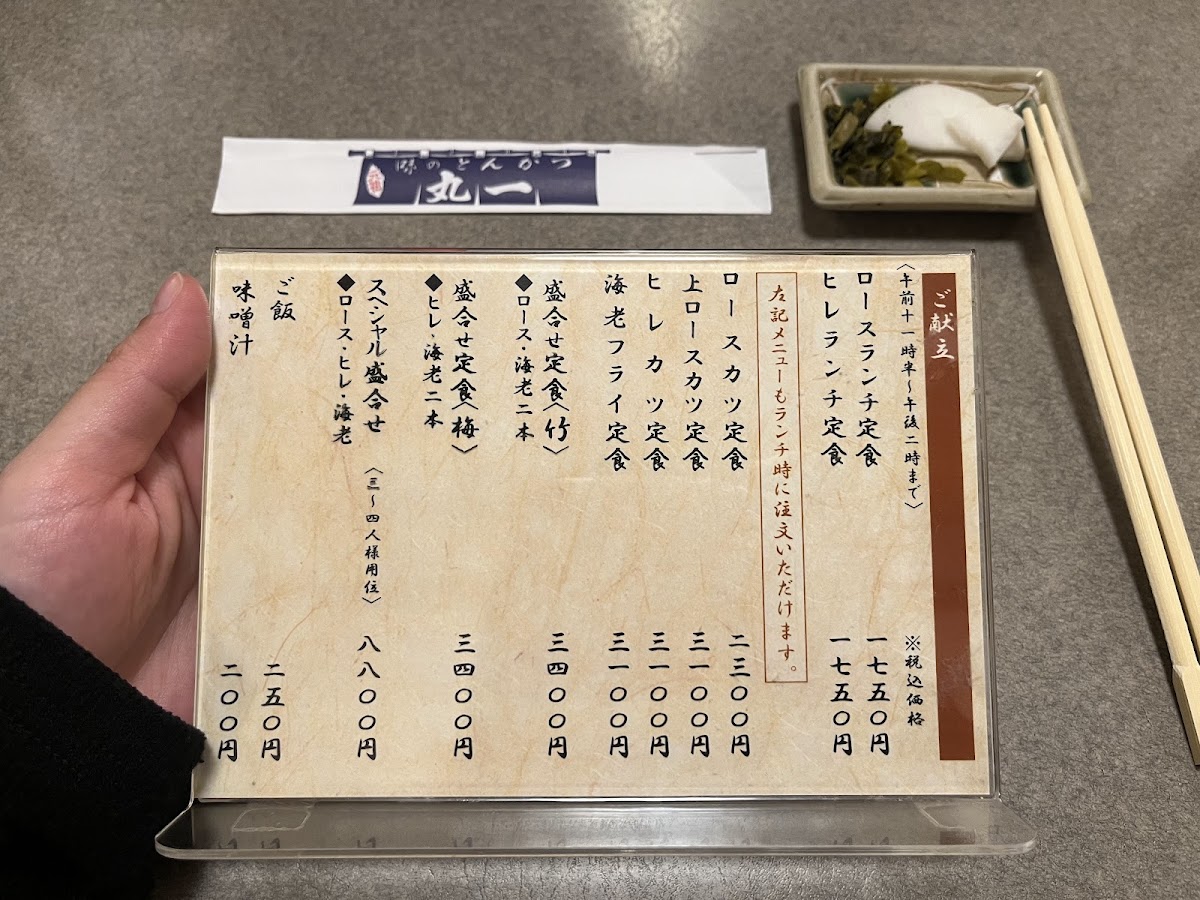 味のとんかつ
丸一
ご献立
〈午前十一時半〜午後二時まで〉 ※税込価格
ロースランチ定食 一七五〇円
ヒレランチ定食 一七五〇円
左記メニューもランチ時に注文いただけます。
ロースカツ定食 二三〇〇円
上ロースカツ定食 三一〇〇円
ヒレカツ定食 三一〇〇円
海老フライ定食 三一〇〇円
盛合せ定食〈竹〉 三四〇〇円
◆ロース・海老二本
盛合せ定食〈梅〉 三四〇〇円
◆ヒレ・海老二本
スペシャル盛合せ 〈三〜四人様用位〉 八八〇〇円
◆ロース・ヒレ・海老
ご飯 二五〇円
味噌汁 二〇〇円